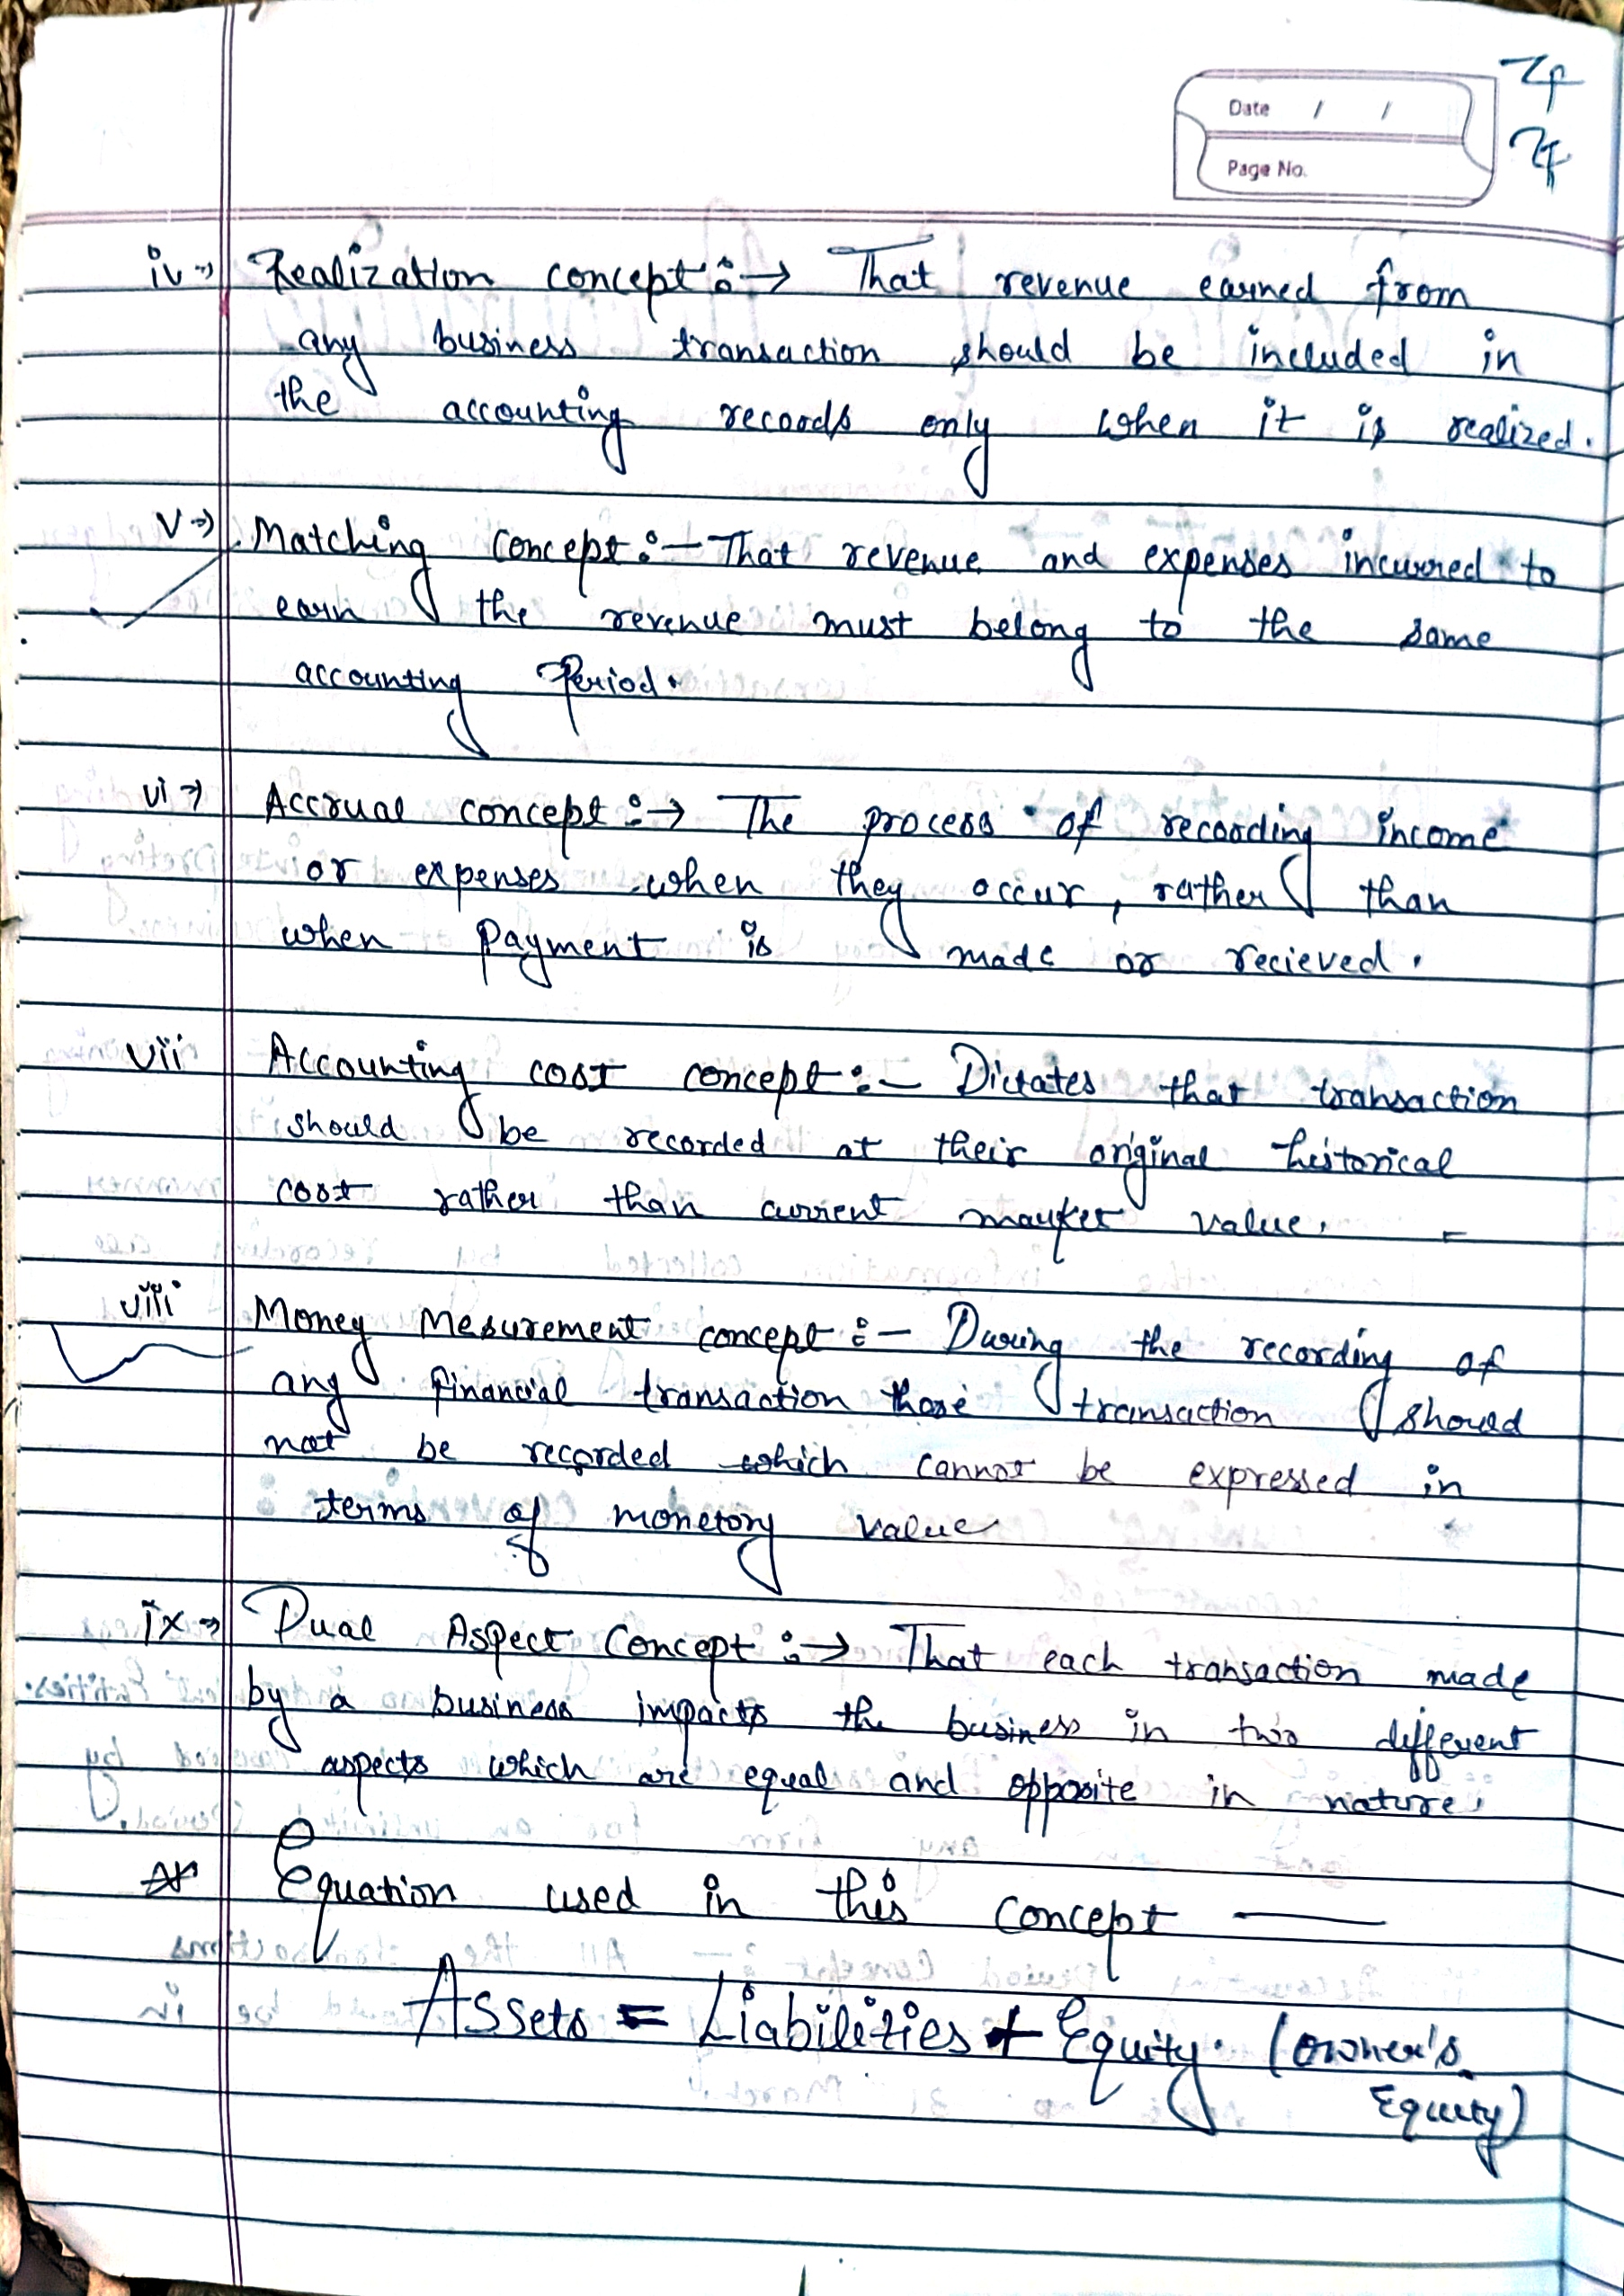 Date / /
Page No.
iv→ Realization concept :→ That revenue earned from
any business transaction should be included in
the accounting records only when it is realized.
v→ Matching concept :- That revenue and expenses incurred to
earn the revenue must belong to the same
accounting Period.
vi→ Accrual concept :→ The process of recording income
or expenses when they occur, rather than
when payment is made or recieved.
vii Accounting cost concept :- Dictates that transaction
should be recorded at their original historical
cost rather than current market value.
viii Money Mesurement concept :- During the recording of
any financial transaction those transaction should
not be recorded which cannot be expressed in
terms of monetory value
ix→ Dual Aspect Concept :→ That each transaction made
by a business impacts the business in two different
aspects which are equal and opposite in nature.
Equation used in this concept —
Assets = Liabilities + Equity. (owner's
Equity)